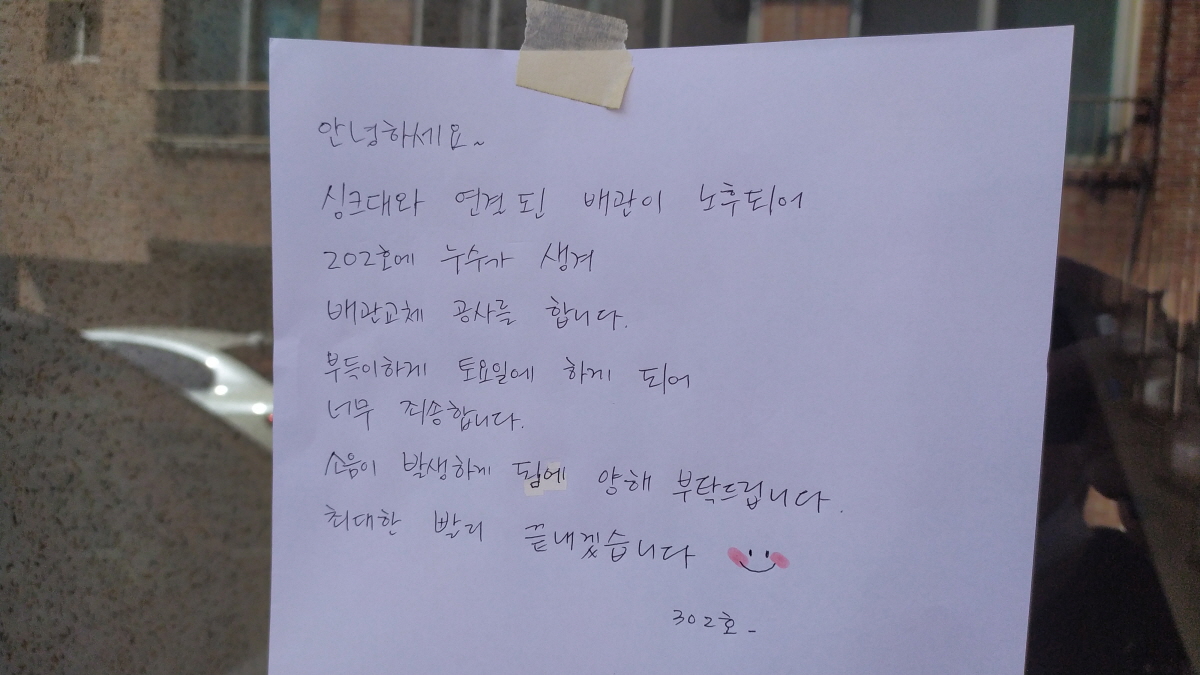 안녕하세요~
싱크대와 연결된 배관이 노후되어
202호에 누수가 생겨
배관교체 공사를 합니다.
부득이하게 토요일에 하게 되어
너무 죄송합니다.
소음이 발생하게 됨에 양해 부탁드립니다.
최대한 빨리 끝내겠습니다
302호-